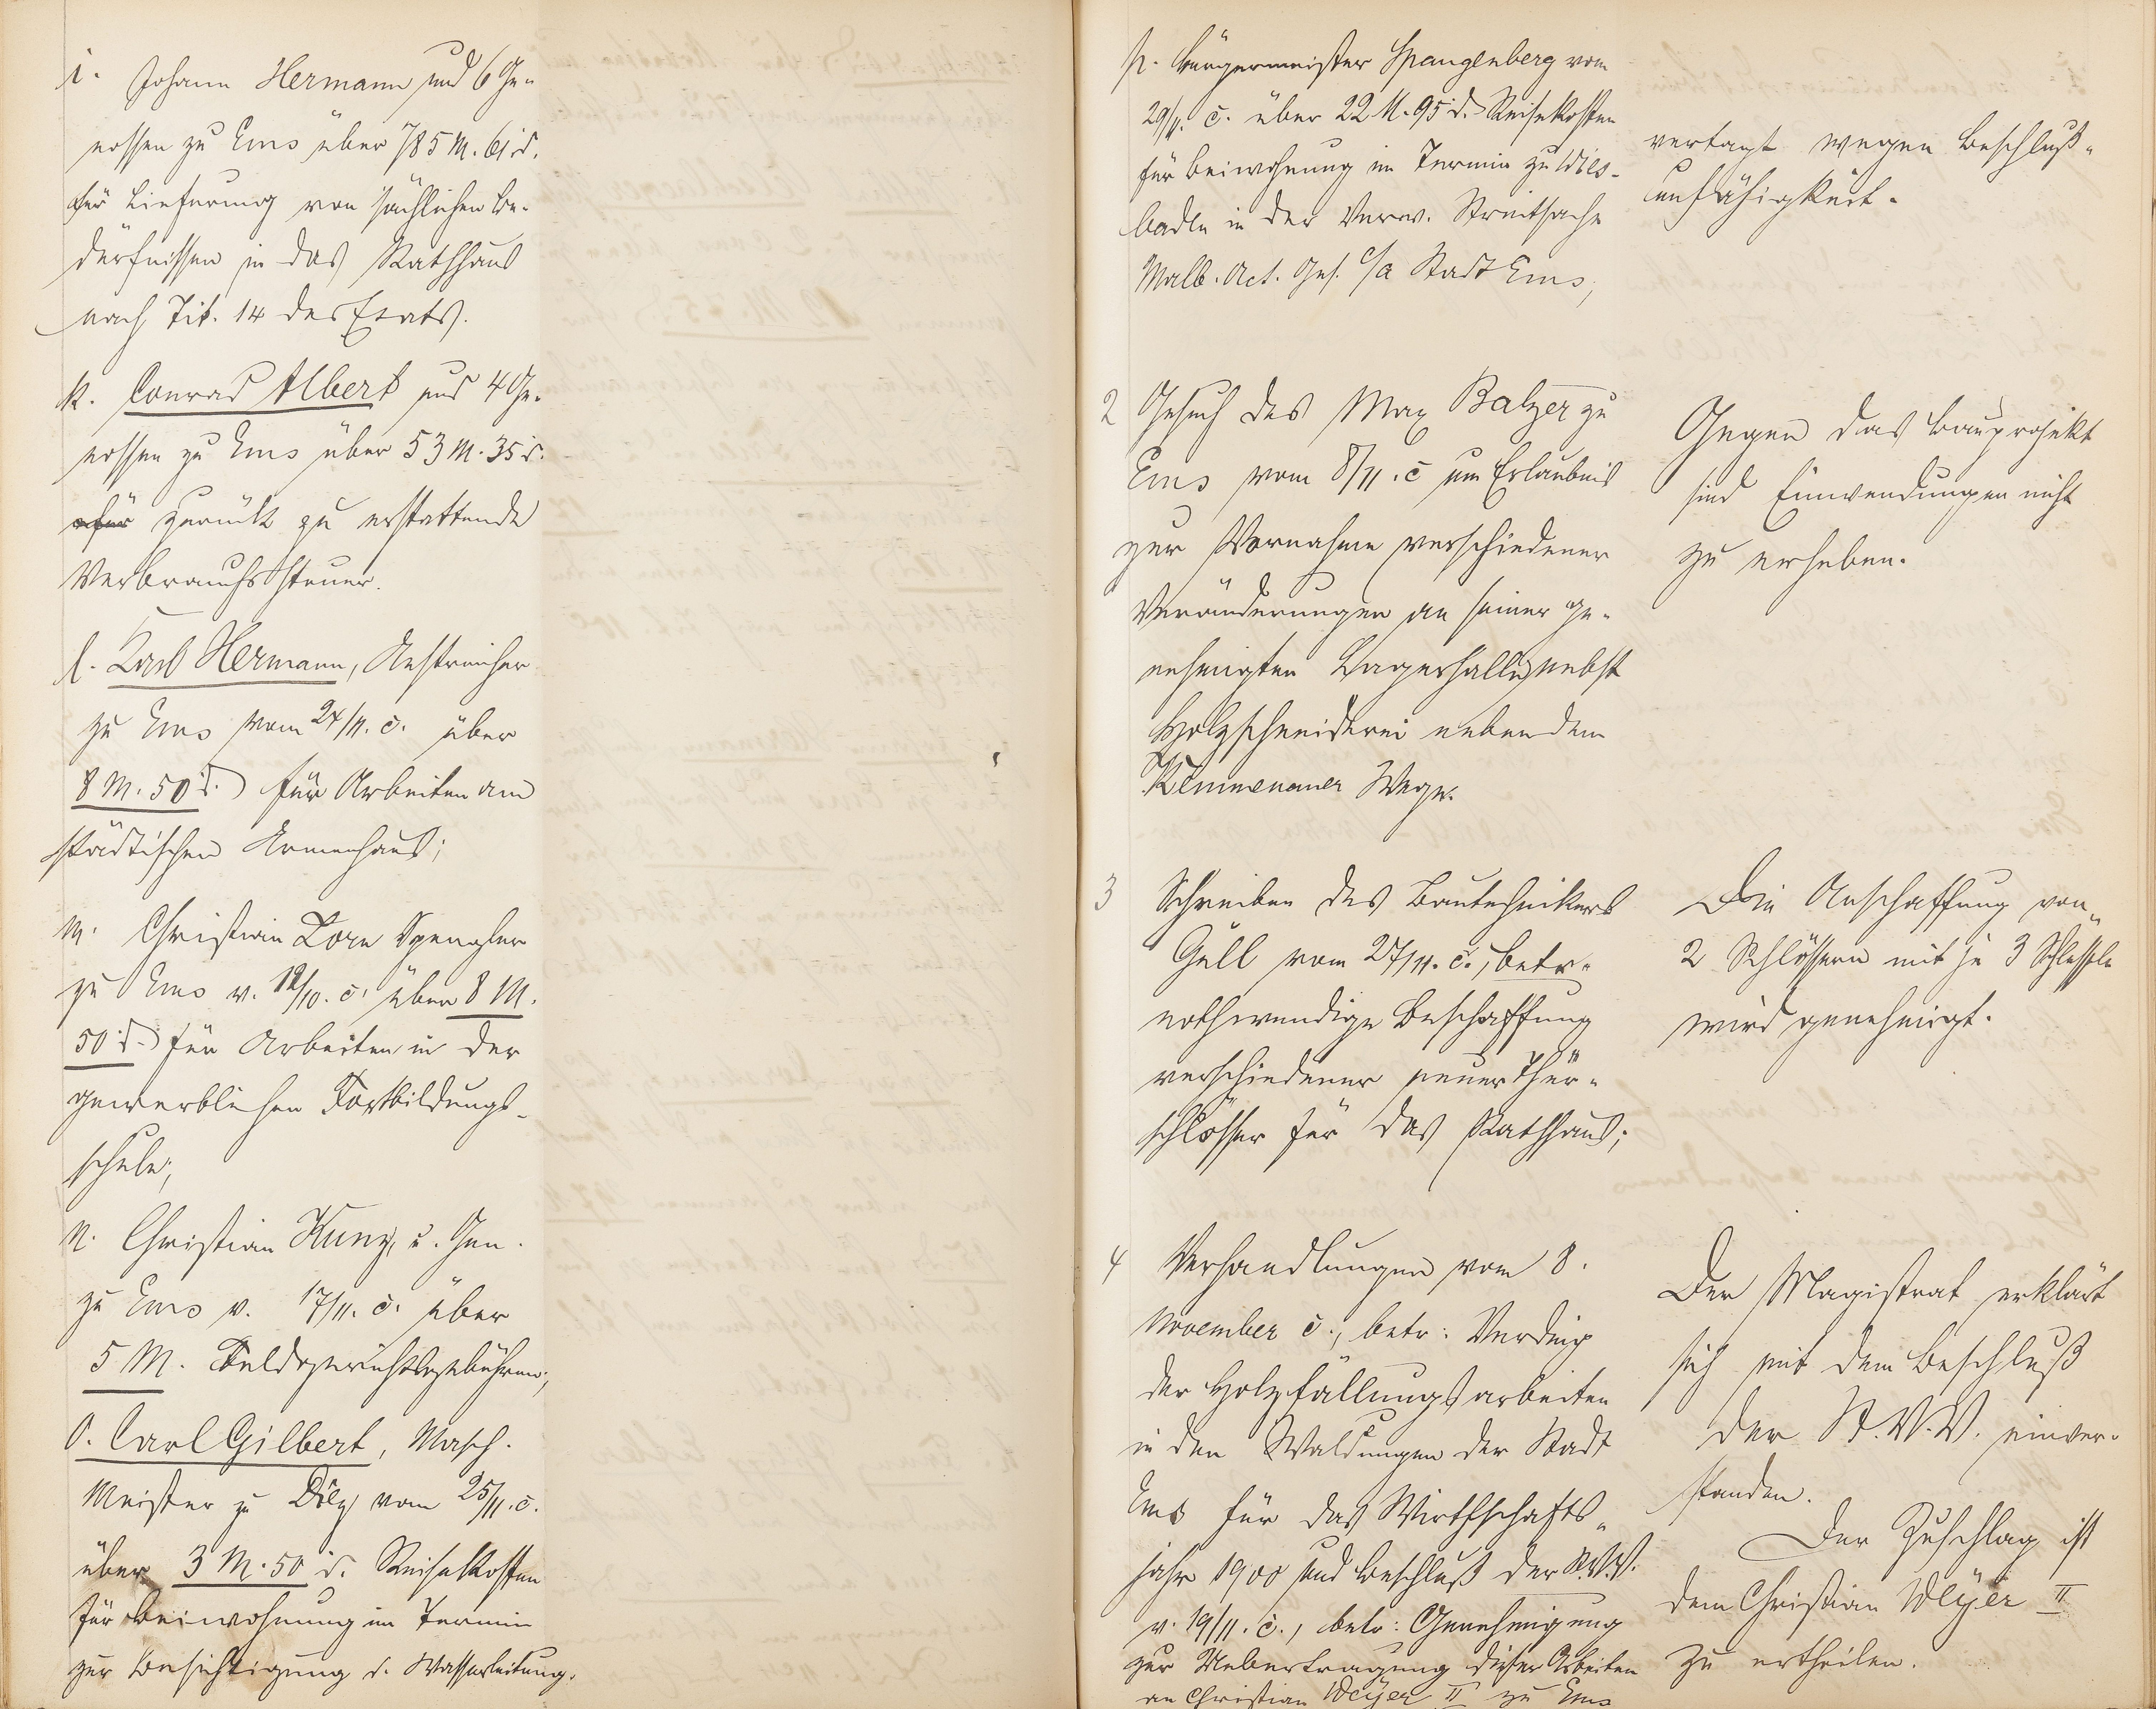 i. Johann Hermann und 6 Ge-
nossen zu Ems über 785 M. 61 d.
für Lieferung von sächlichen Be-
dürfnissen in das Rathhaus
nach Tit. 14 des Etats.
k. Conrad Albert und 4 Ge-
nossen zu Ems über 53 M. 35 d.
für zurück zu erstattende
Verbrauchssteuer.
l. Karl Hermann, Anstreicher
zu Ems vom 24/11. c. über
8 M. 50 d. für Arbeiten am
städtischen Armenhaus;
m. Christian Lorn Spengler
zu Ems v. 12/10. c. über 8 M.
50 d. für Arbeiten in der
gewerblichen Fortbildungs-
schule;
n. Christian Kunz u. Gen.
zu Ems v. 17/11. c. über
5 M. Feldgerichtsgebühren;
o. Carl Gilbert, Masch.
Meister zu Diez vom 25/11. c.
über 3 M. 50 d. Reisekosten
für Beiwohnung im Termin
zur Besichtigung d. Wasserleitung.
p. Bürgermeister Spangenberg vom
29/11. c. über 22 M. 95 d. Reisekosten
für Beiwohnung im Termin zu Wies-
baden in der Verw. Streitsache
Malb. Act. Ges. c/a Stadt Ems;
vertagt wegen Beschluß-
unfähigkeit.
2 Gesuch des Max Balzer zu
Ems vom 8/11. c um Erlaubnis
zur Vornahme verschiedener
Veränderungen an seiner ge-
nehmigten Lagerhalle nebst
Holzschneiderei neben dem
Kemmenauer Wege.
Gegen das Bauprojekt
sind Einwendungen nicht
zu erheben.
3 Schreiben des Bautechnikers
Gull vom 27/11. c., betr.
nothwendige Beschaffung
verschiedener neuer Thür-
schlösser für das Rathhaus;
Die Anschaffung von
2 Schlössern mit je 3 Schlüsseln
wird genehmigt.
4 Verhandlungen vom 8.
November c., betr: Verding
der Holzfällungsarbeiten
in den Waldungen der Stadt
Ems für das Wirthschafts-
jahr 1900 und Beschluß der St.V.V.
v. 19/11. c., betr: Genehmigung
zur Uebertragung dieser Arbeiten
an Christian Weyer II zu Ems
Der Magistrat erklärt
sich mit dem Beschluß
der St.V.V. einver-
standen.
Der Zuschlag ist
dem Christian Weyer II
zu ertheilen.